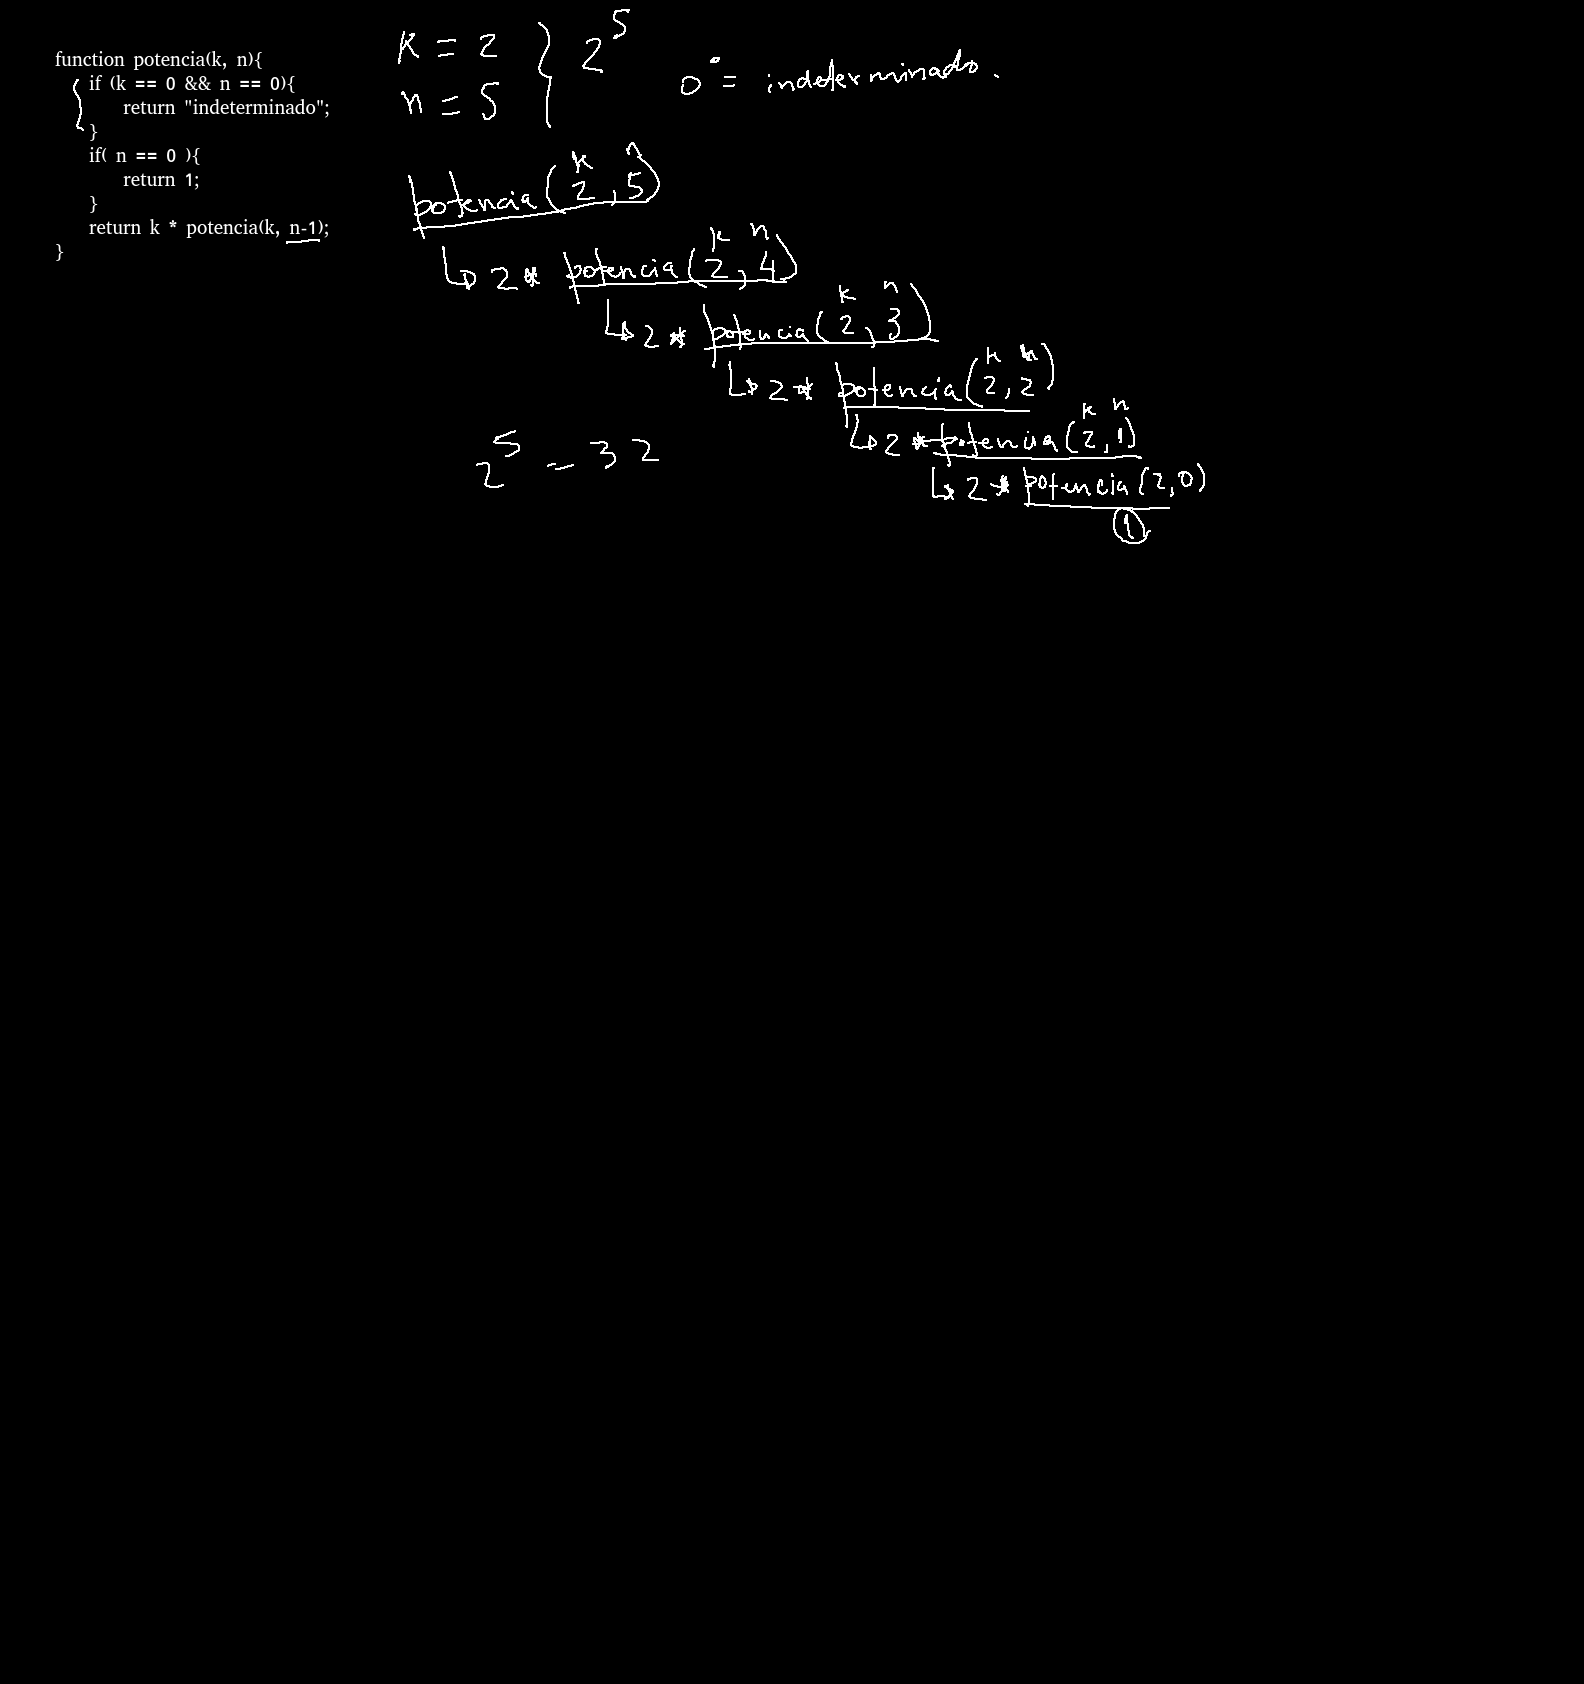 function potencia(k, n){
if (k == 0 && n == 0){
return "indeterminado";
}
if( n == 0 ){
return 1;
}
return k * potencia(k, n-1);
}
K = 2
n = 5
} 2^5
0° = indeterminado.
k n
potencia(2, 5)
k n
↳ 2 * potencia(2, 4)
k n
↳ 2 * potencia(2, 3)
k n
↳ 2 * potencia(2, 2)
k n
↳ 2 * potencia(2, 1)
↳ 2 * potencia(2, 0)
1
2^5 = 32